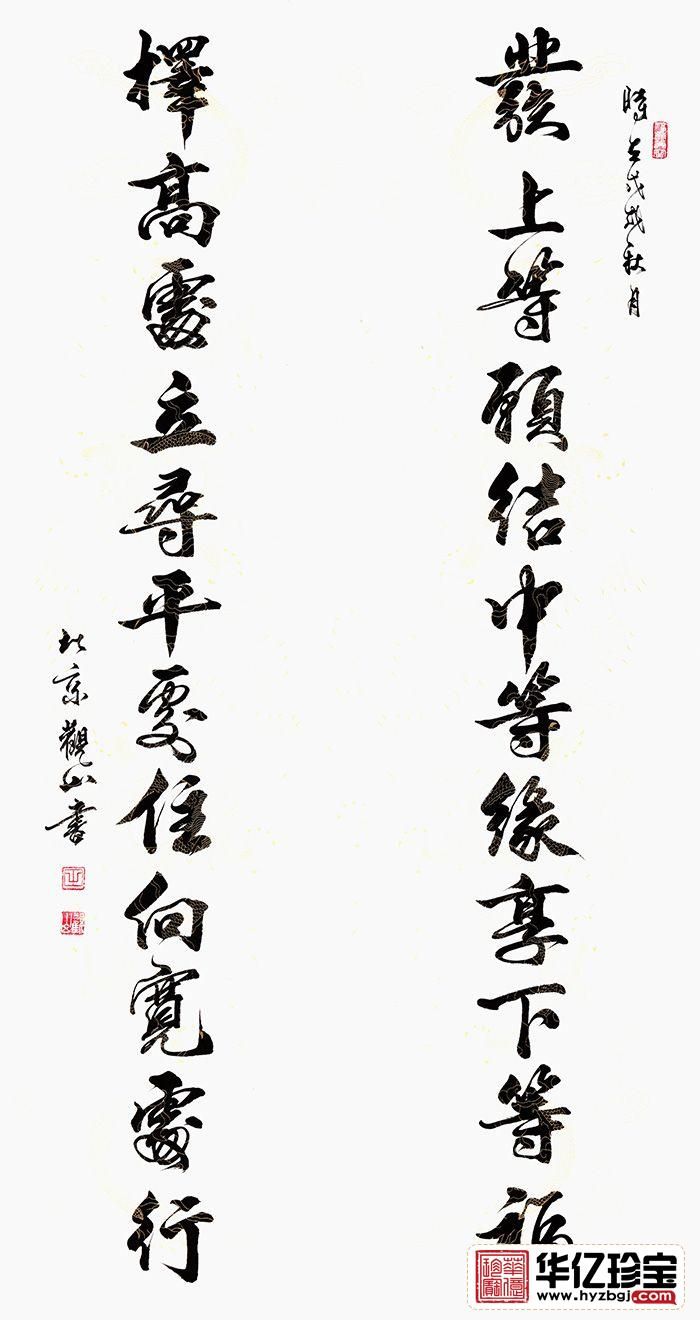 時在戊戌秋月
發上等願結中等緣享下等福
擇高處立尋平處住向寬處行
北京觀山書
华亿珍宝
www.hyzbgj.com